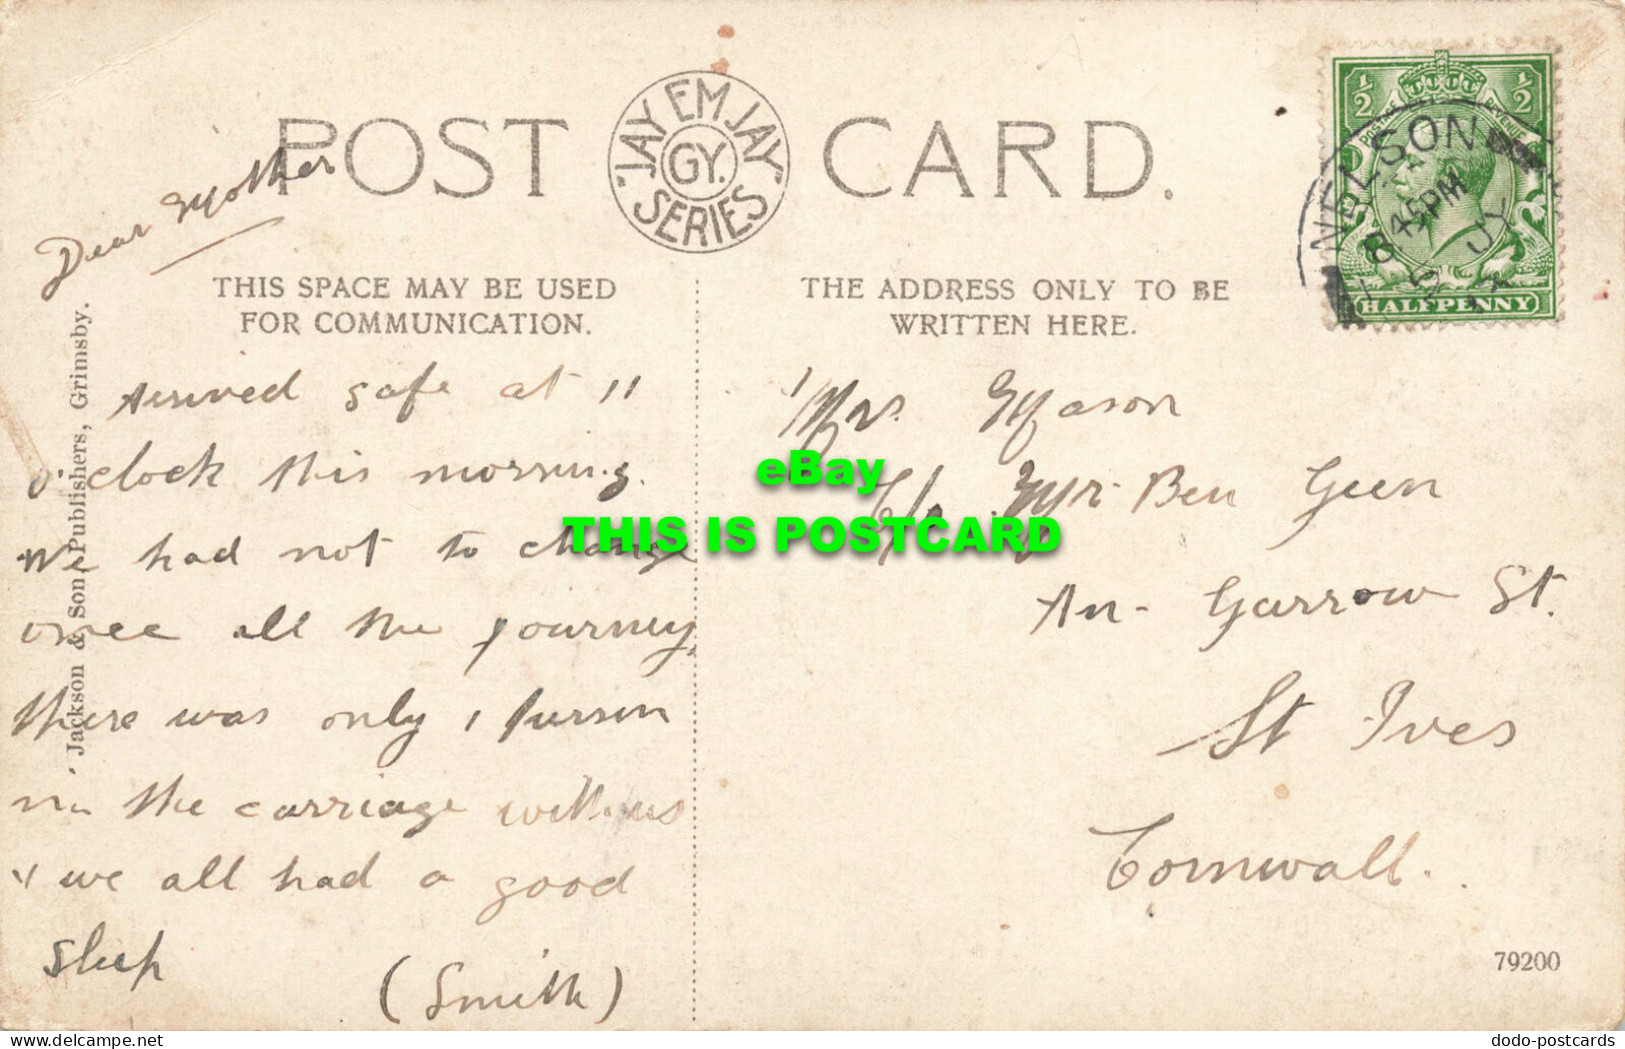 POST CARD.
JAY EM JAY
GY.
SERIES
Dear Mother
THIS SPACE MAY BE USED
FOR COMMUNICATION.
THE ADDRESS ONLY TO BE
WRITTEN HERE.
½ ½
POSTAGE REVENUE
HALFPENNY
NELSON
8 45 PM
5 JY
Arrived safe at 11
o'clock this morning.
We had not to change
once all the journey,
there was only 1 person
in the carriage with us
& we all had a good
sleep
(Smith)
Mrs. Mason
C/o Mr. Ben Geen
An-Garrow St.
St Ives
Cornwall.
Jackson & Son, Publishers, Grimsby.
79200
eBay
THIS IS POSTCARD
delcampe.net
dodo-postcards